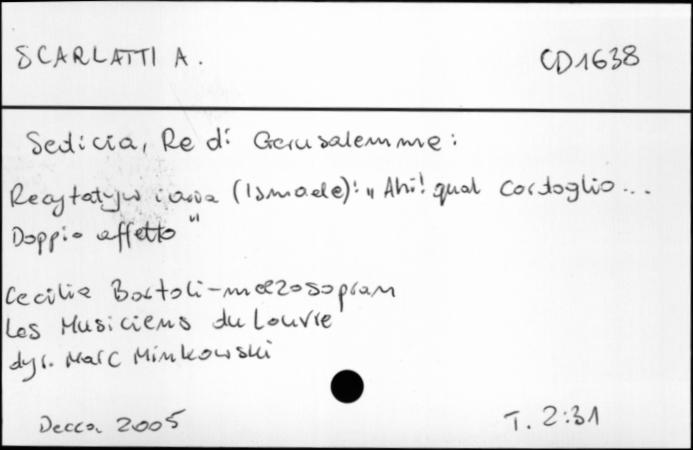 SCARLATTI A.
CD1638
Sedicia, Re di Gerusalemme:
Recytatyw i aria (Ismaele): „Ahi! qual cordoglio...
Doppio affetto"
Cecilia Bartoli - mezzosopran
Les Musiciens du Louvre
dyr. Marc Minkowski
Decca 2005
T. 2:31